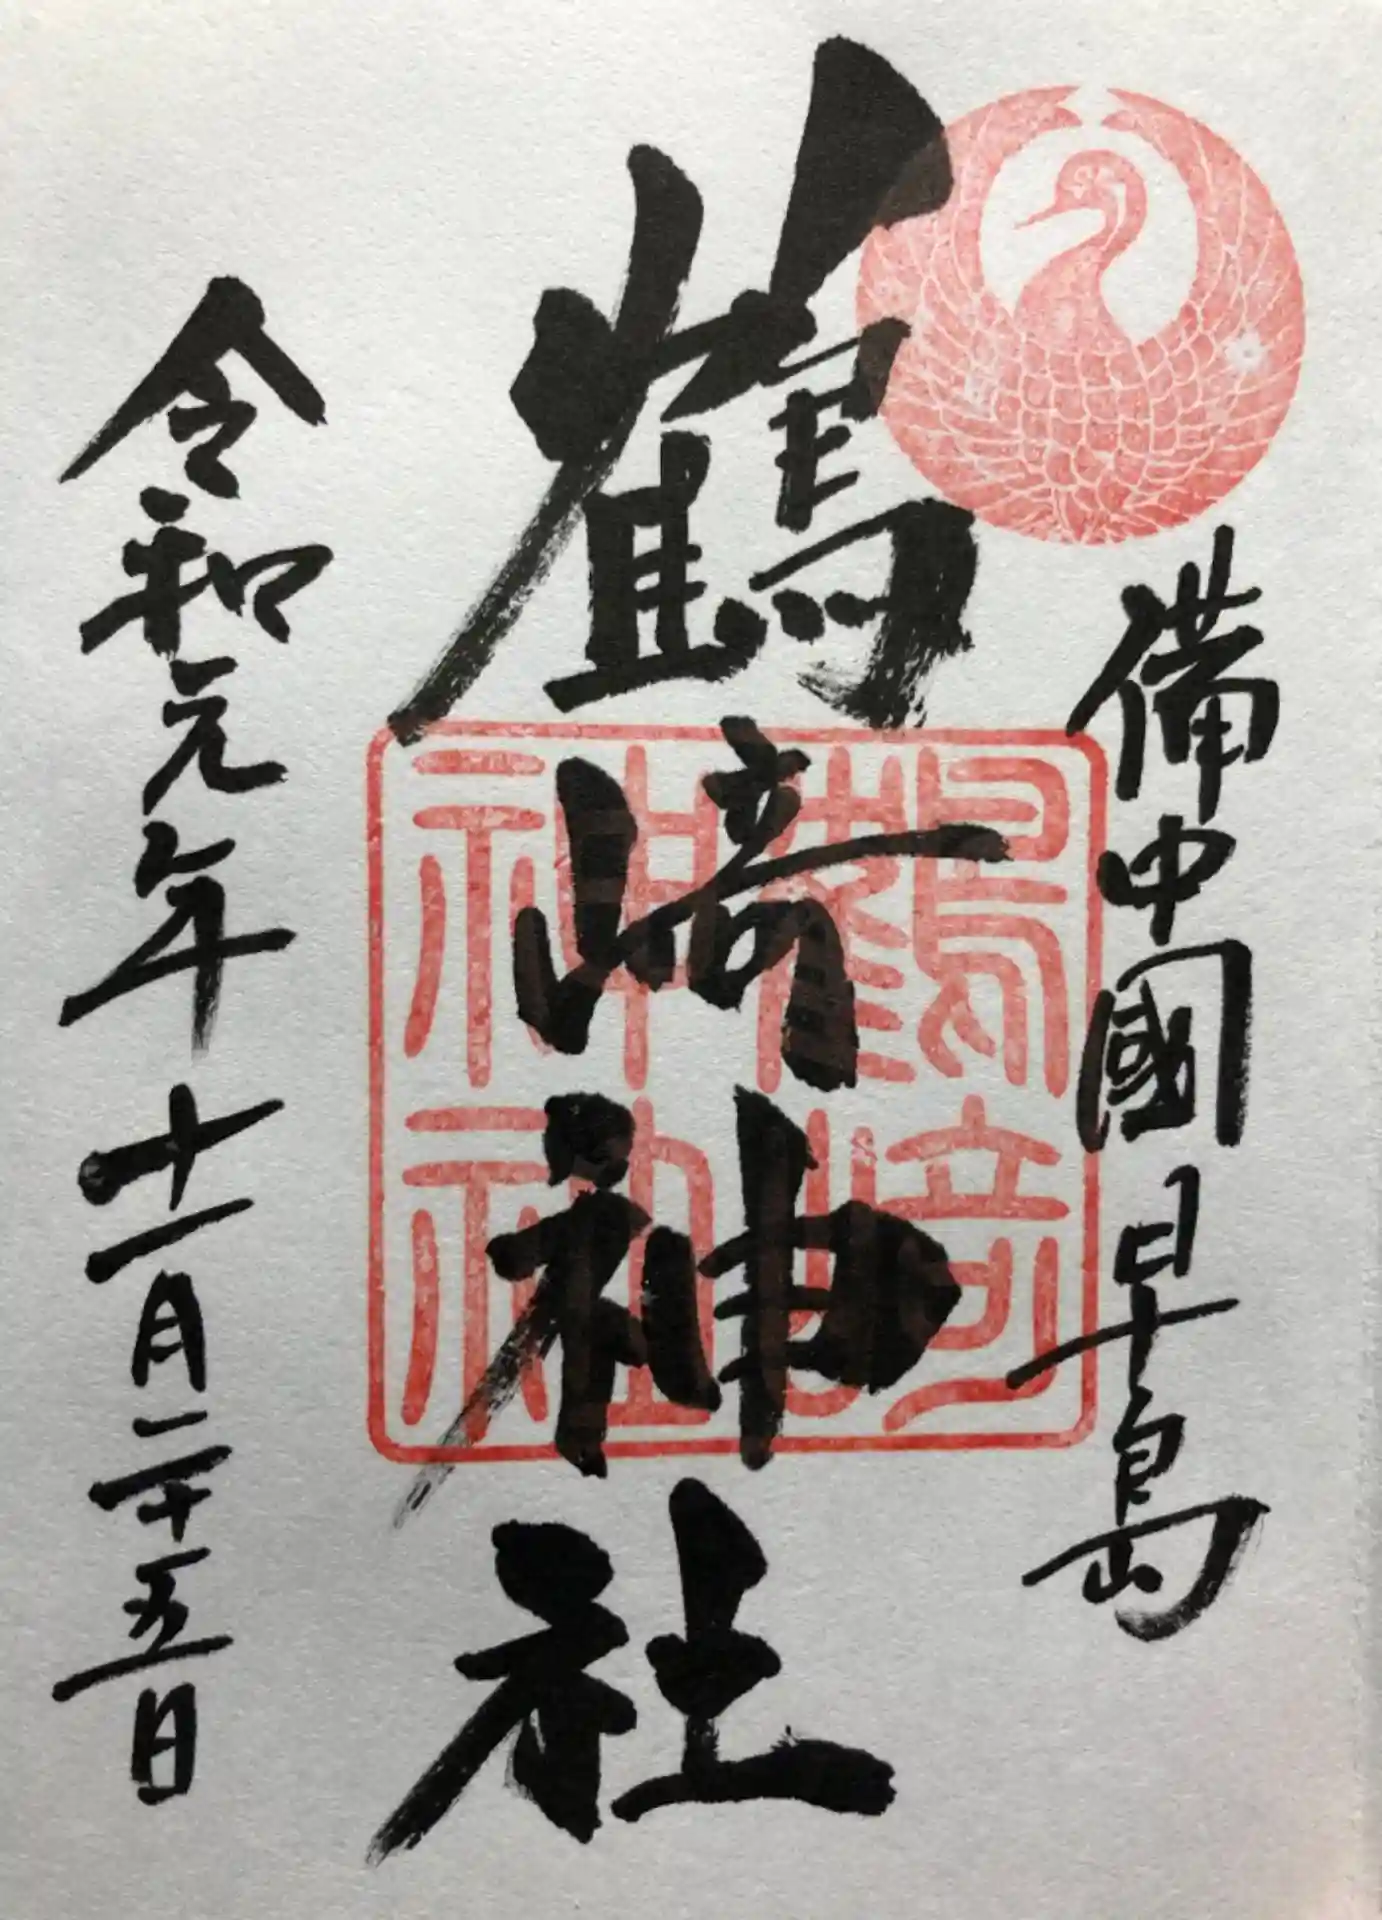 備中國早島
鶴﨑神社
令和元年十一月二十五日
鶴﨑
神社